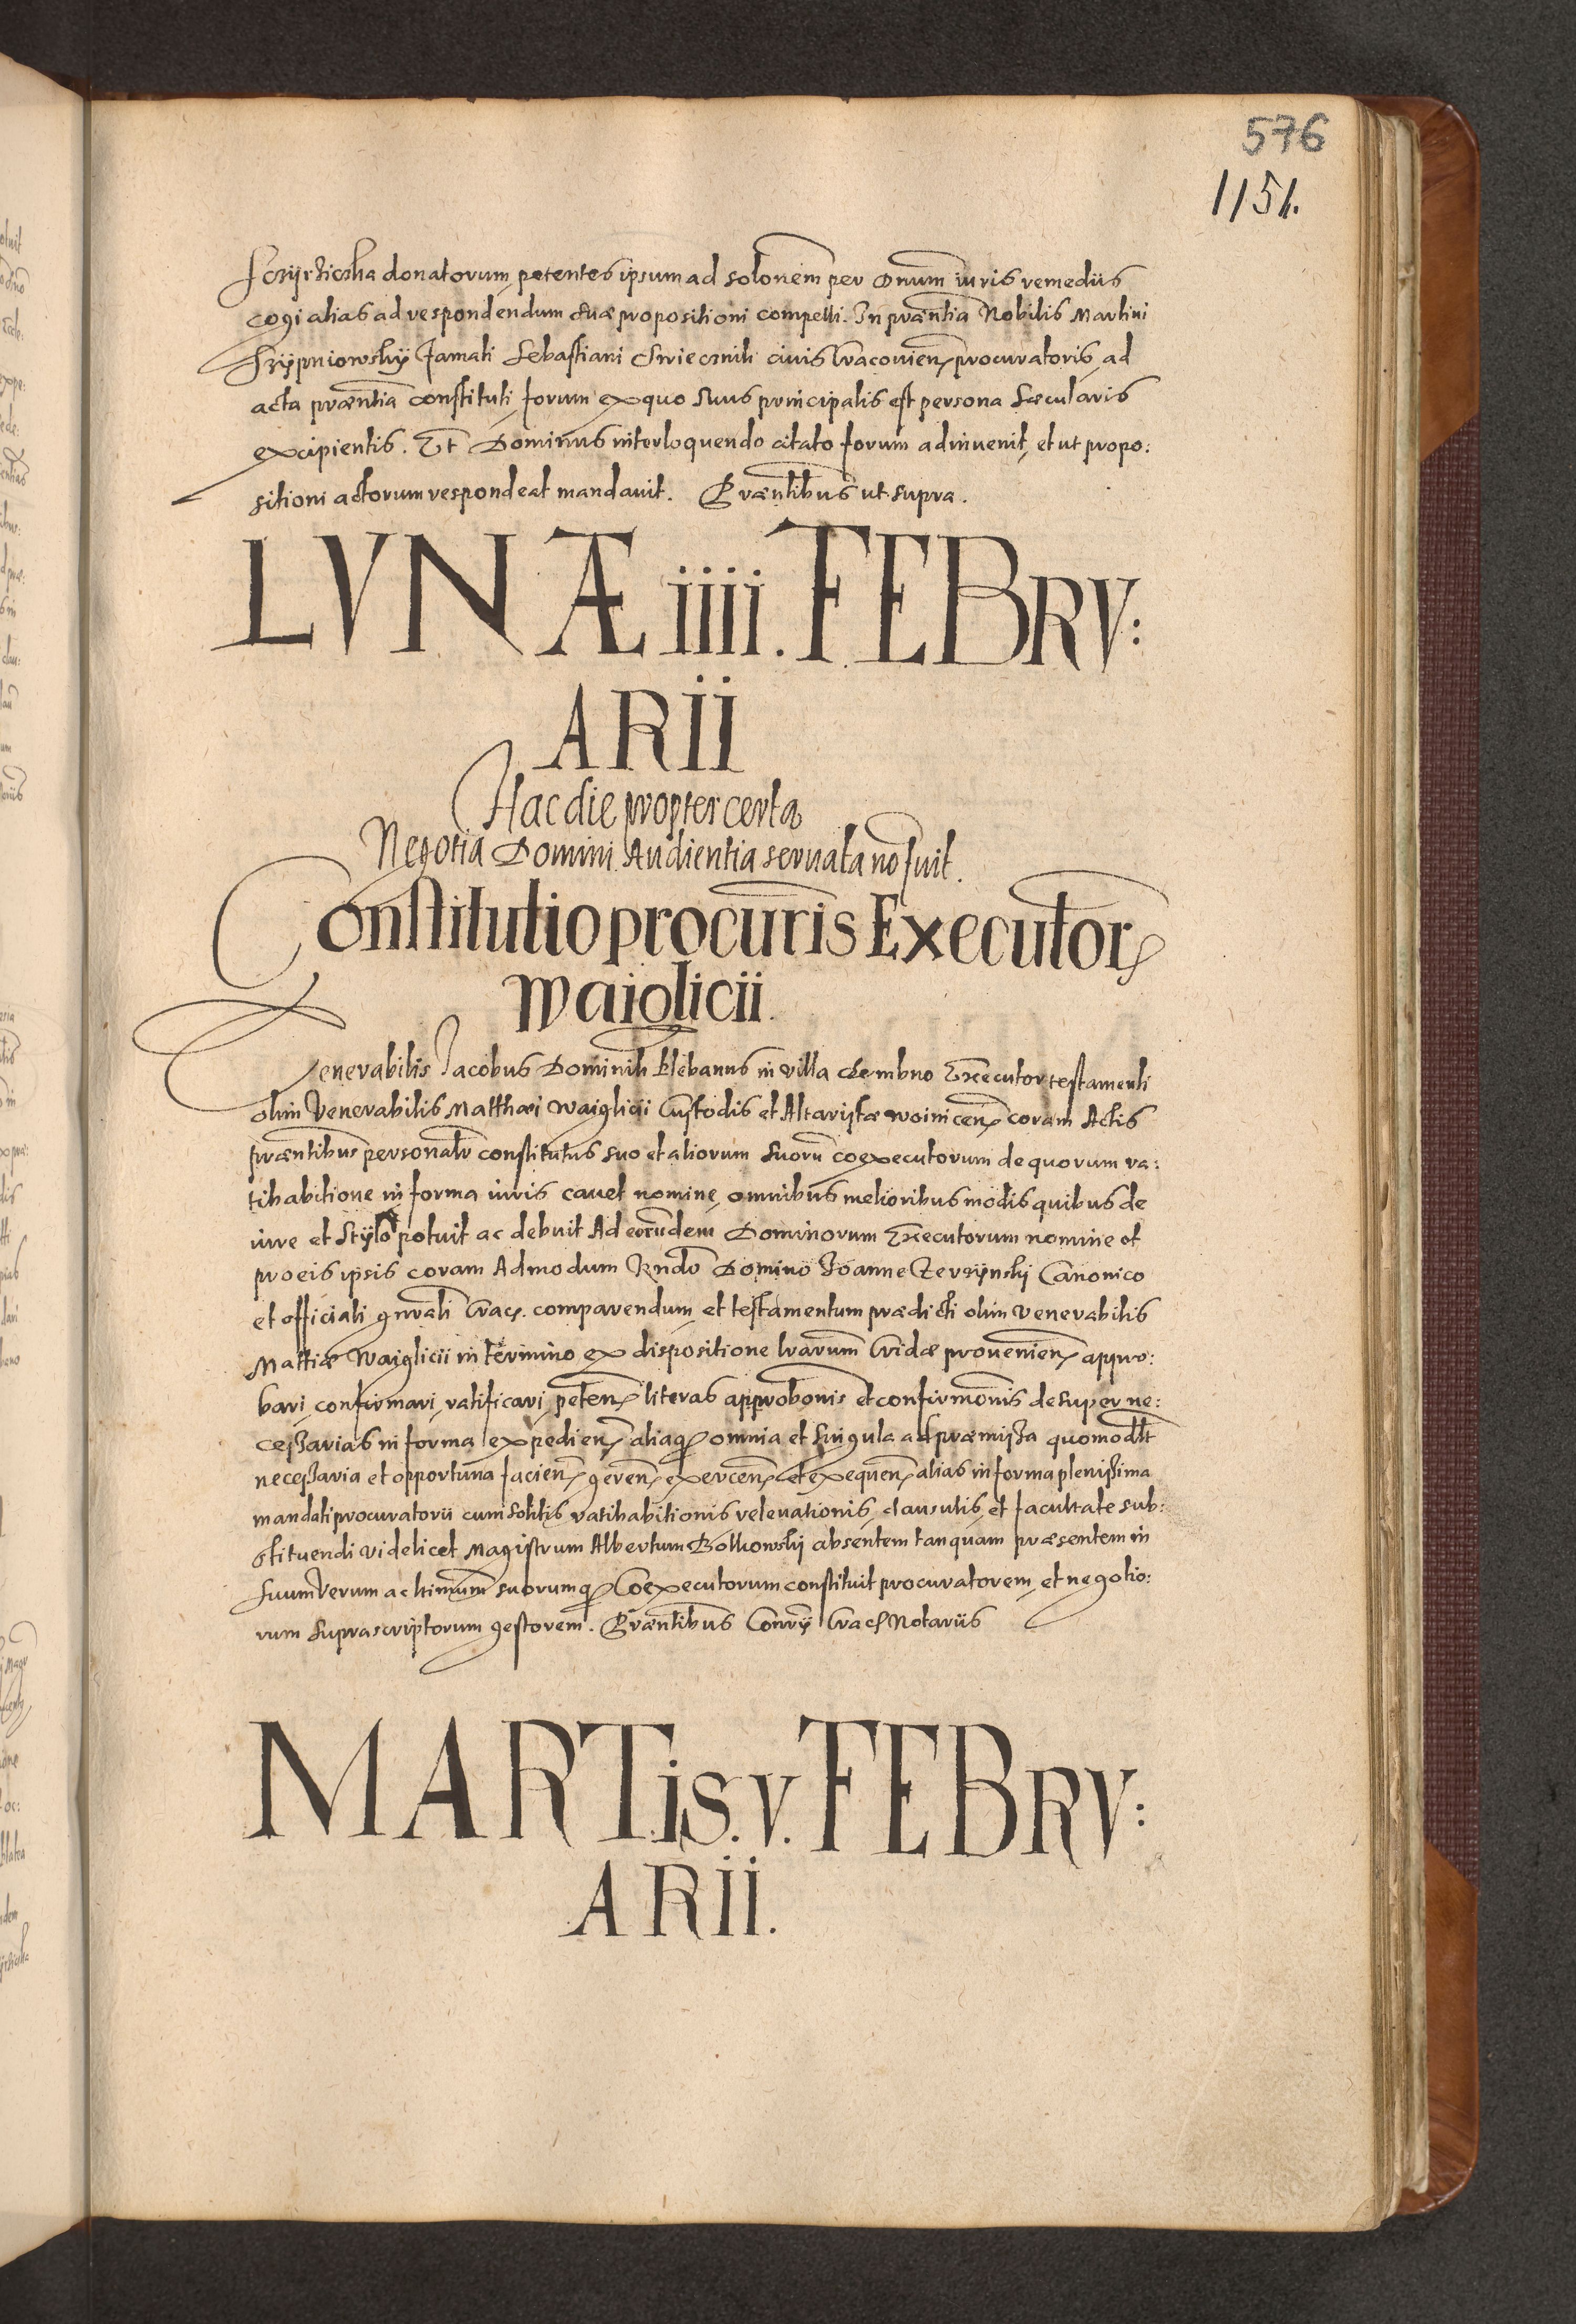 576
1151.
donatorum, petentes ipsum ad solonem per Dnum iuris remediis
cogi alias ad respondendum suæ propositioni compelli. In præntia Nobilis Martini
Famati Sebastiani civis Cracovien procuratoris, ad
acta præntia constituti, forum ex quo suus principalis est persona sæcularis
excipientis. Et Dominus interloquendo citato forum adinvenit, et ut propo:
sitioni actorum respondeat mandavit. Præntibus ut supra.
LVNÆ iiii. FEBRV:
ARii
Hac die propter certa
Negotia Domini Audientia servata no fuit.
Constitutio procuris Executor
Waiglicii.
Venerabilis Jacobus Dominik Plebanus in villa Dembno Executor testamenti
olim Venerabilis Matthæi Waiglicii Custodis et Altaristæ Woinicen coram Actis
præntibus personalr constitutus suo et aliorum suoru coexecutorum de quorum ra:
tihabitione in forma iuris cavet nomine, omnibus melioribus modis quibus de
iure et stylo potuit ac debuit Ad eorundem Dominorum Executorum nomine et
pro eis ipsis coram Admodum Rndo Domino Joanne Canonico
et officiali gnrali Crac. comparendum, et testamentum prædicti olim Venerabilis
Mattiæ Waiglicii in termino ex dispositione lrarum Cridæ provenien, appro:
bari, confirmari, ratificari, peten literas approbonis et confirmonis desuper ne:
cessarias in forma expedien aliaq omnia et singula ad præmissa quomodlt
necessaria et opportuna facien geren exercen et exequen alias in forma plenissima
mandati procuratorii cum solitis ratihabitionis relevationis, clausulis, et facultate sub:
stituendi videlicet Magistrum Albertum Bolkowski absentem tanquam præsentem in
suum verum ac ltimum suorumq Coexecutorum constituit procuratorem, et negotio:
rum suprascriptorum gestorem. Præntibus Conrÿ Crac Notariis
MARTis. v. FEBRV:
ARii.